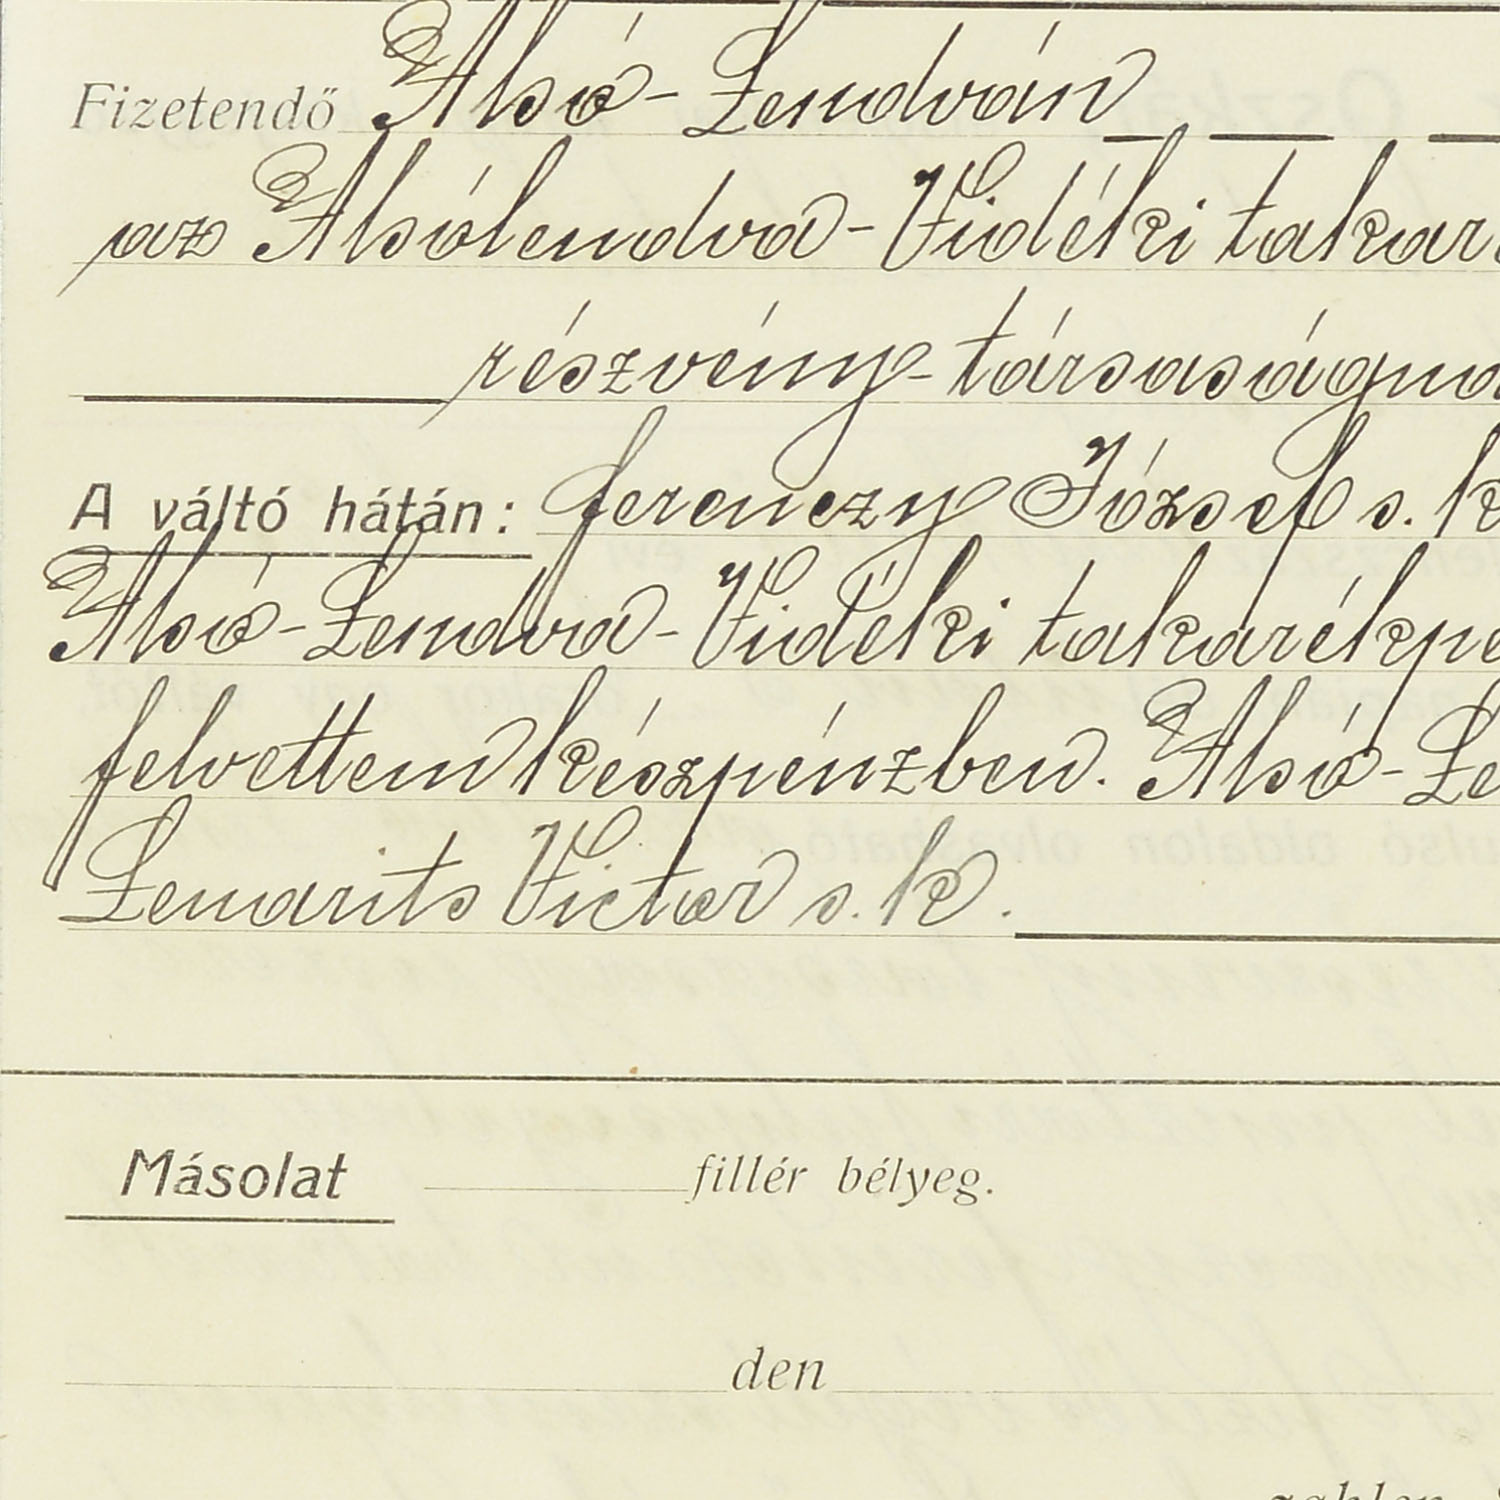 Fizetendő Alsó-Lendván
az Alsólendva-Vidéki takar
részvény-társaságna
A váltó hátán: Ferenczy József s. k
Alsó-Lendva-Vidéki takarékpé
felvettem készpénzben. Alsó-Le
Lenarits Victor s. k.
Másolat fillér bélyeg.
den
zahlen